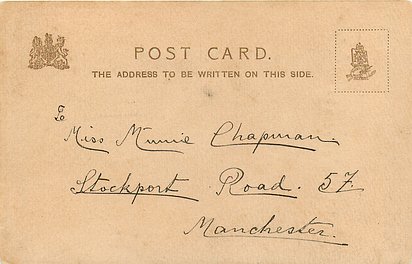 POST CARD.
THE ADDRESS TO BE WRITTEN ON THIS SIDE.
To
Miss Minnie Chapman.
Stockport Road. 57.
Manchester.